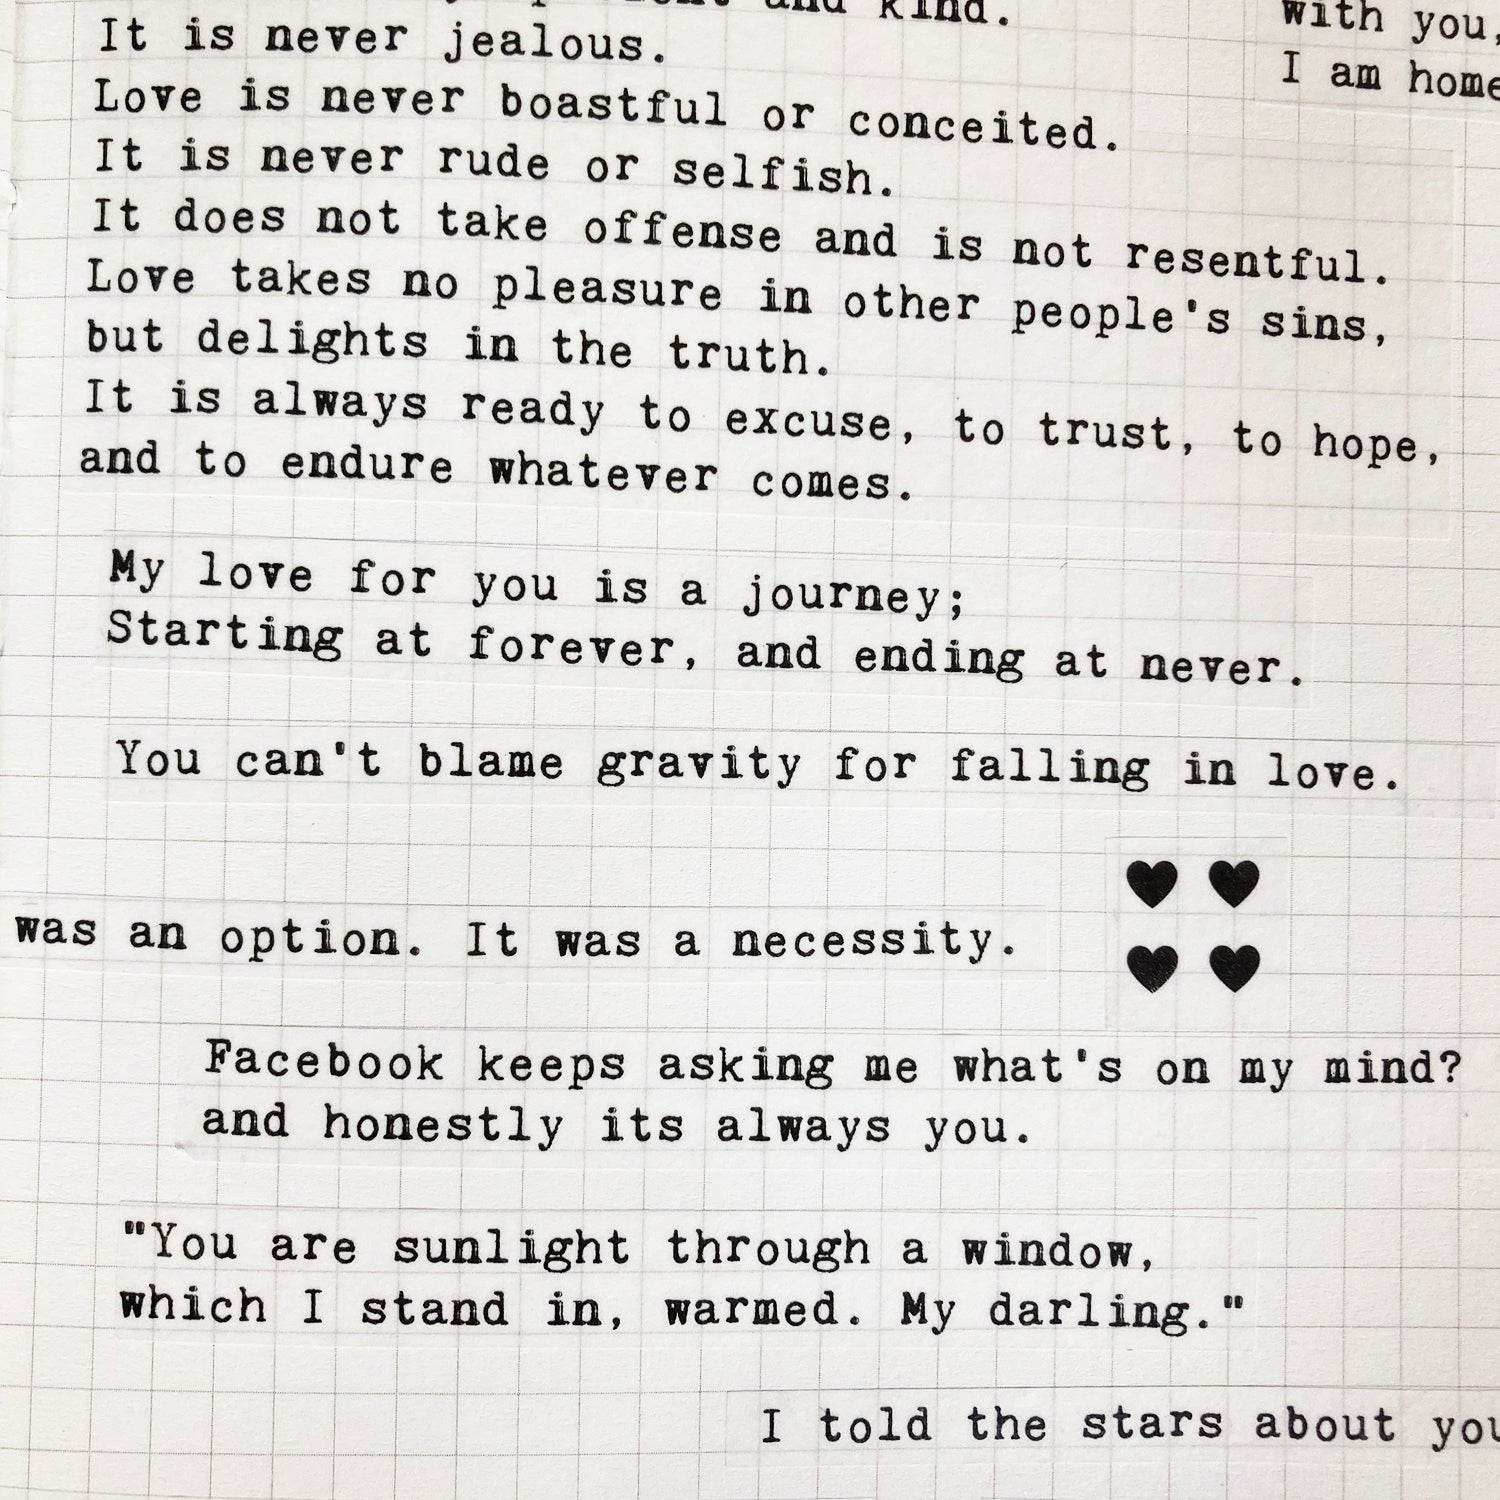 and kind.
It is never jealous.
Love is never boastful or conceited.
It is never rude or selfish.
It does not take offense and is not resentful.
Love takes no pleasure in other people's sins,
but delights in the truth.
It is always ready to excuse, to trust, to hope,
and to endure whatever comes.
with you,
I am home
My love for you is a journey;
Starting at forever, and ending at never.
You can't blame gravity for falling in love.
was an option. It was a necessity.
Facebook keeps asking me what's on my mind?
and honestly its always you.
"You are sunlight through a window,
which I stand in, warmed. My darling."
I told the stars about you